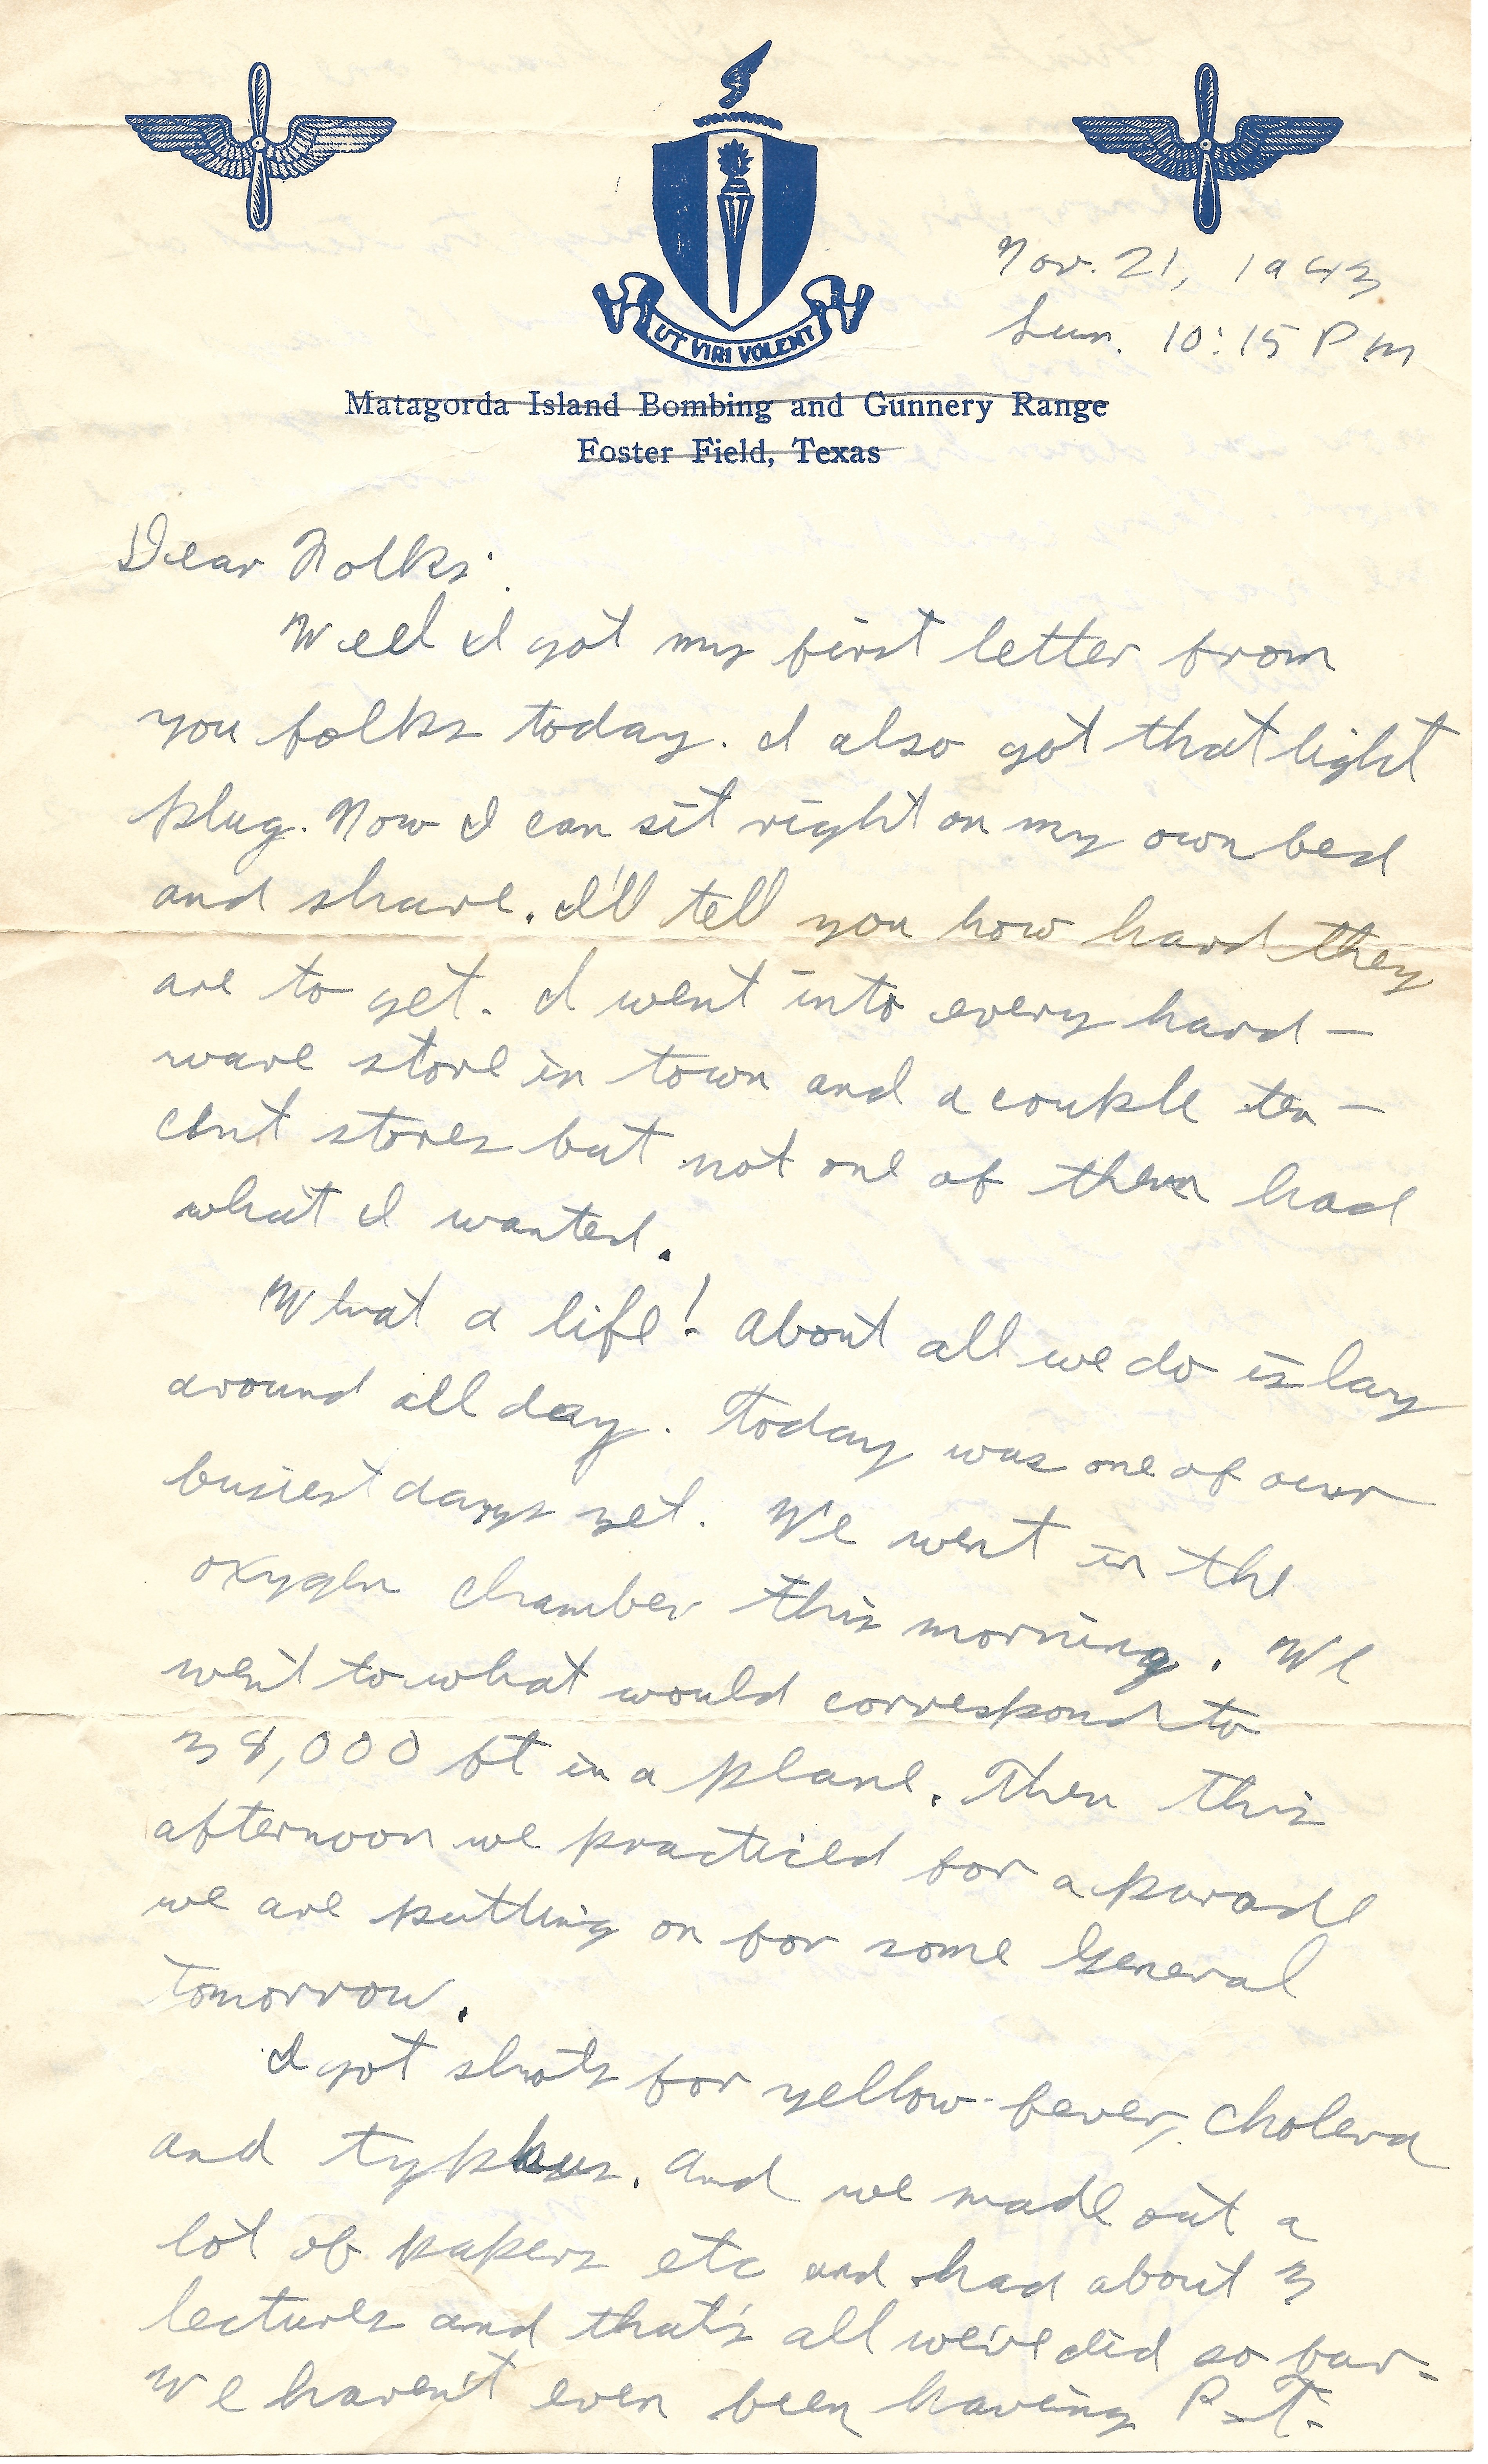 UT VIRI VOLENT
Nov. 21, 1943
Sun. 10:15 P m
Matagorda Island Bombing and Gunnery Range
Foster Field, Texas
Dear Folks:
Well I got my first letter from
you folks today. I also got that light
plug. Now I can sit right on my own bed
and shave. I'll tell you how hard they
are to get. I went into every hard-
ware store in town and a couple ten-
cent stores but not one of them had
what I wanted.
What a life! About all we do is lay
around all day. Today was one of our
busiest days yet. We went in the
oxygen chamber this morning. We
went to what would correspond to
38,000 ft in a plane. Then this
afternoon we practiced for a parade
we are putting on for some General
tomorrow.
I got shots for yellow-fever, cholera
and typhus. And we made out a
lot of papers etc and had about 3
lectures and that's all we've did so far.
We haven't even been having P.T.